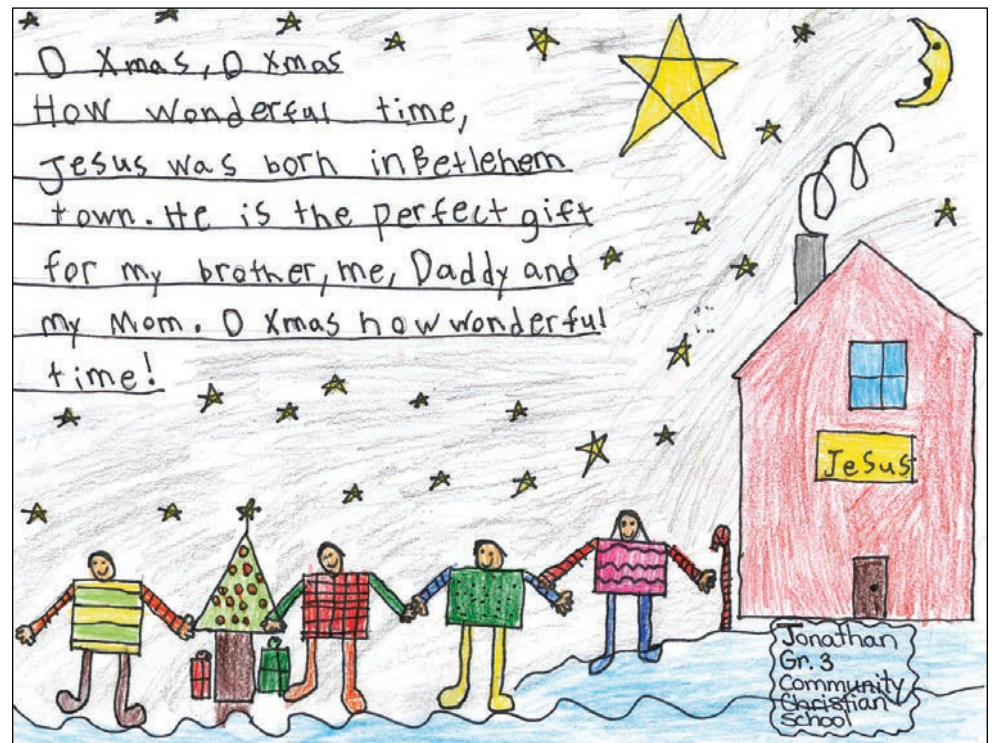 O Xmas, O Xmas
How wonderful time,
Jesus was born in Betlehem
town. He is the perfect gift
for my brother, me, Daddy and
my Mom. O Xmas how wonderful
time!
Jesus
Jonathan
Gr. 3
Community
Christian
School